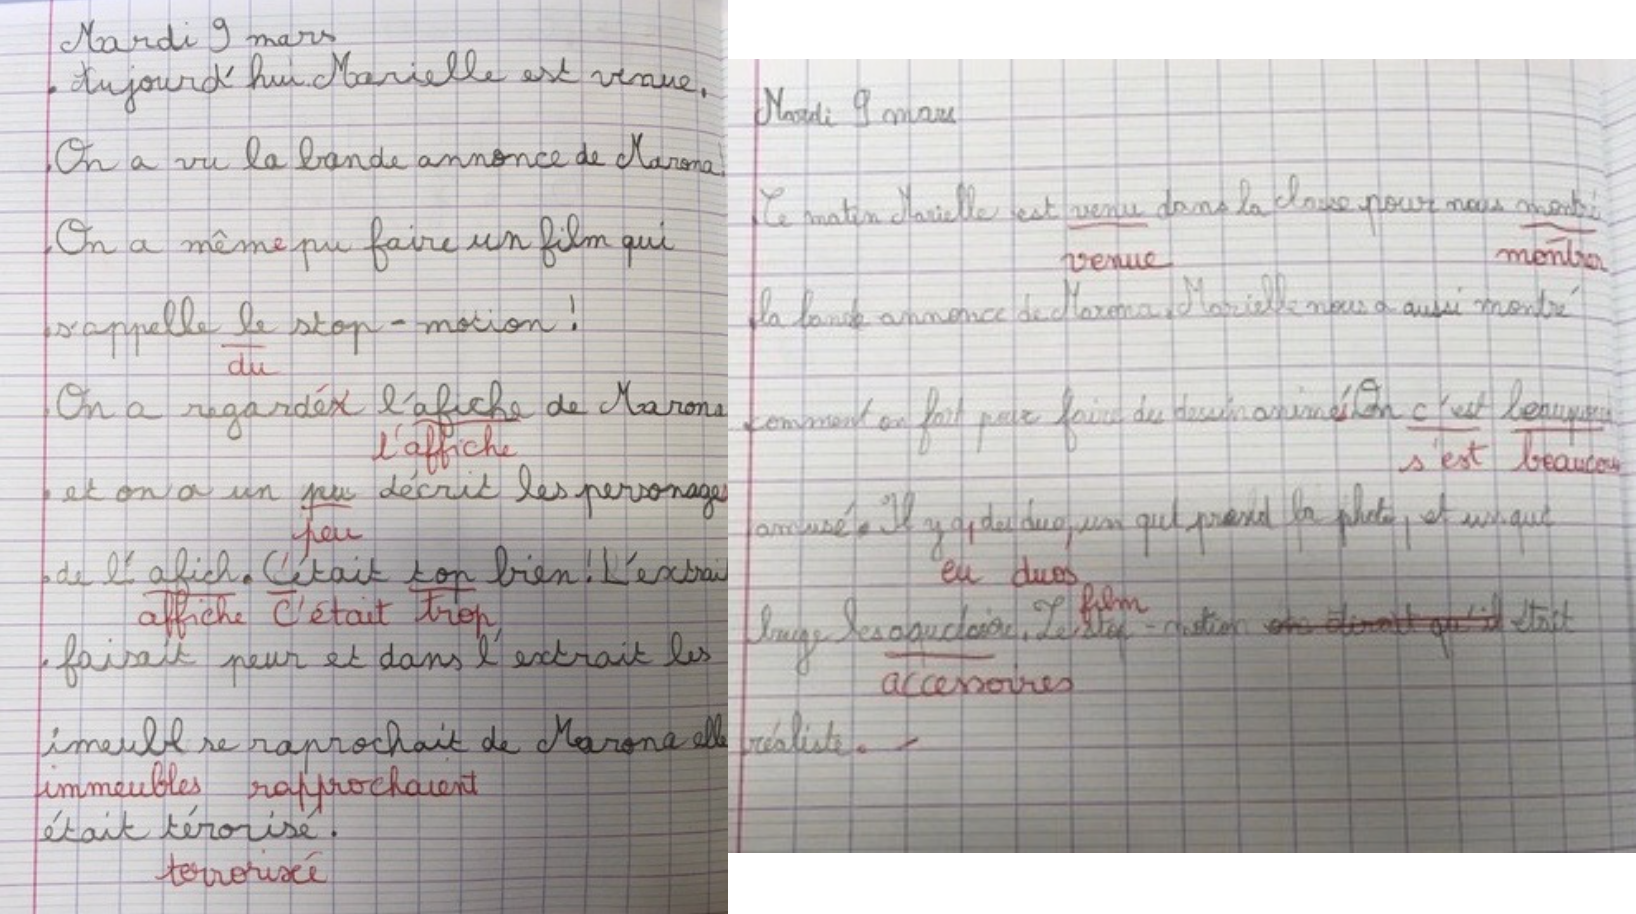 Mardi 9 mars
Aujourd'hui Marielle est venue.
On a vu la bande annonce de Marona.
On a même pu faire un film qui
s'appelle le stop-motion !
du
On a regardéx l'afiche de Marona
l'affiche
et on a un pu décrit les personages
peu
de l'afich. C'était top bien ! L'extrai
affiche C'était trop
faisait peur et dans l'extrait les
imeubl se raprochait de Marona elle
immeubles rapprochaient
était térorisé.
terrorisée
Mardi 9 mars
Ce matin Marielle est venu dans la classe pour nous montré
venue montrer
la bande annonce de Marona. Marielle nous a aussi montré
comment on fait pour faire des dessin animés. On c'est
s'est beaucou
amusé. Il y a, des duo, un qui prend la photo, et un qui
eu duos
film
bouge les. Le stop-motion était
accessoires
réaliste.